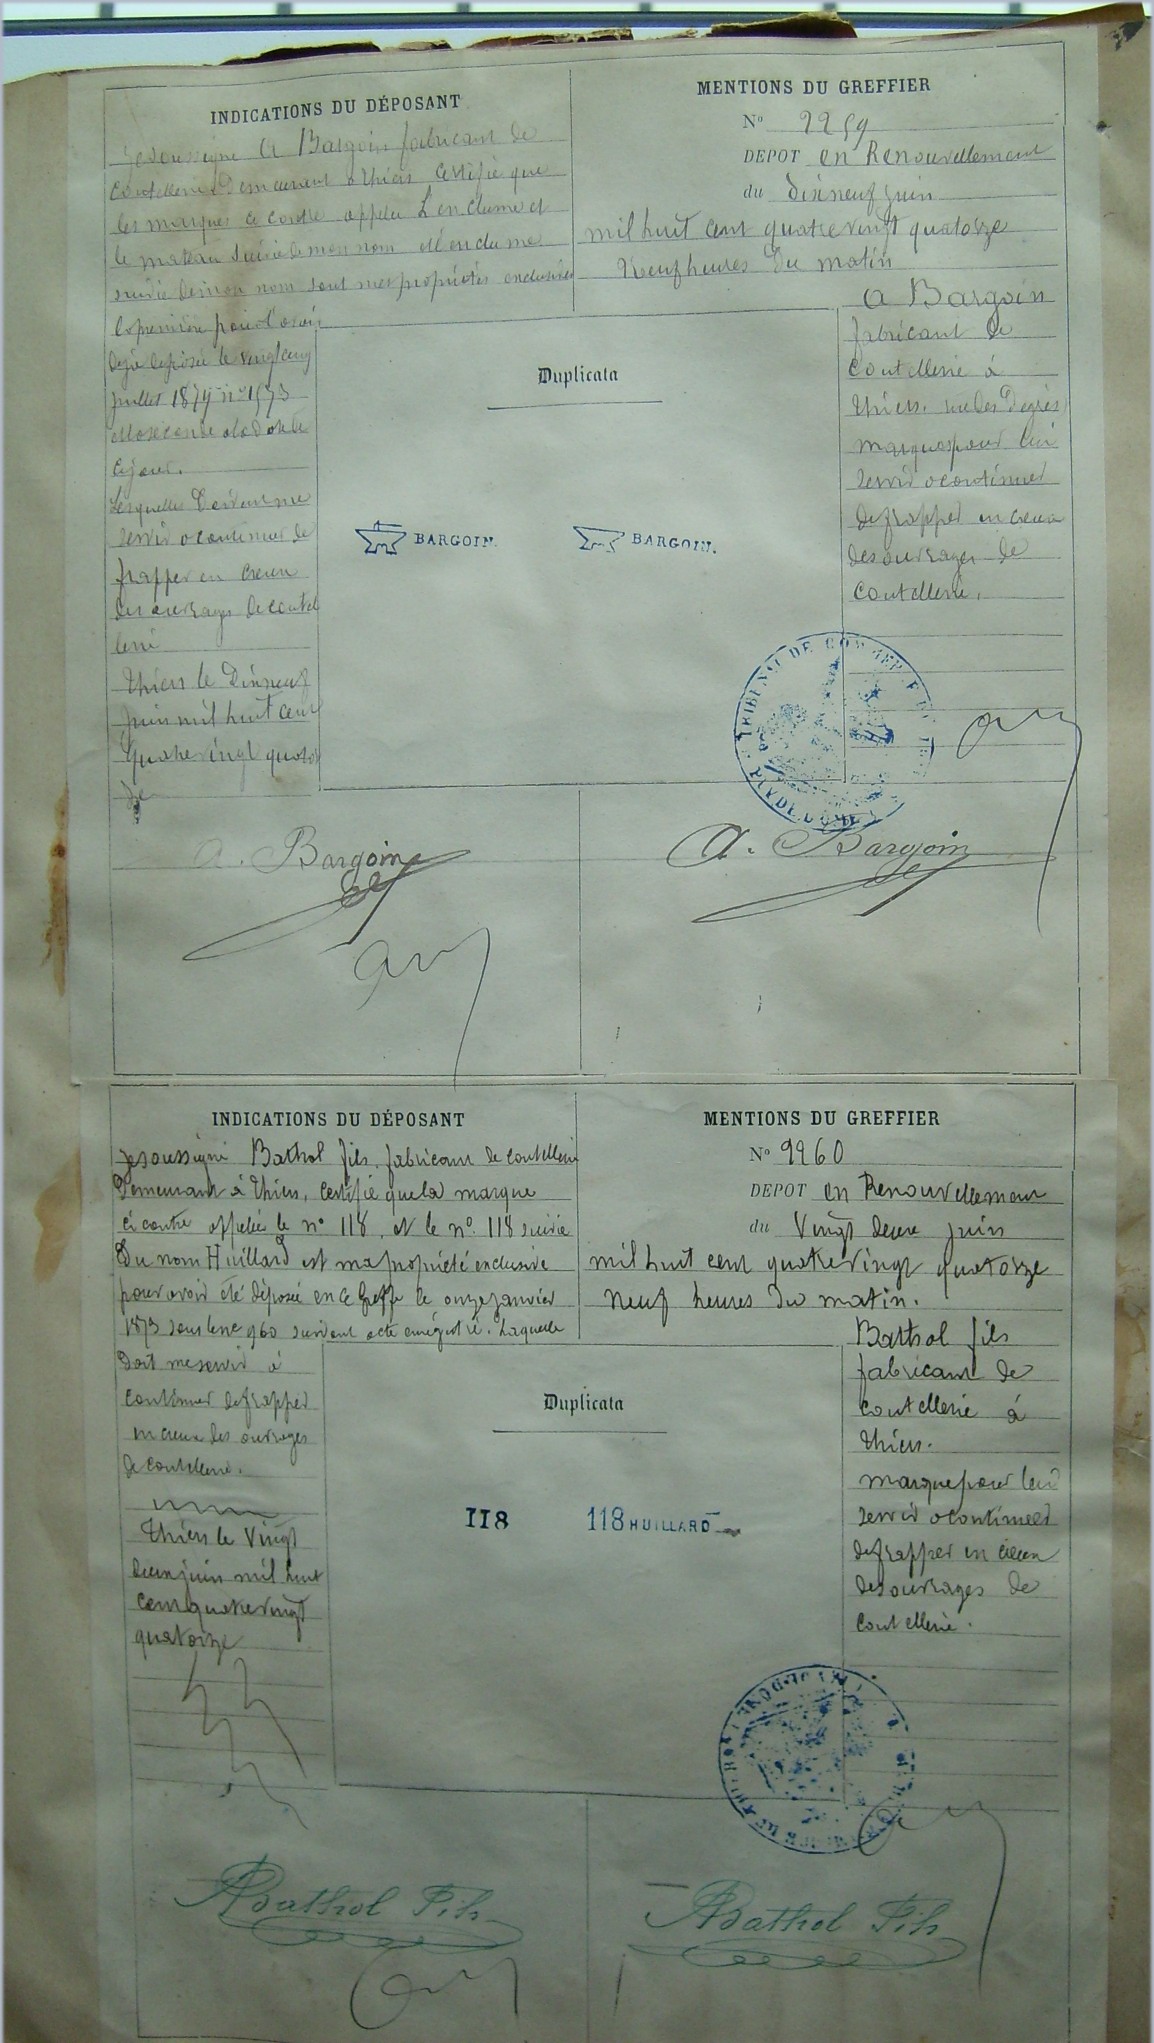 INDICATIONS DU DÉPOSANT
Je soussigné A Bargoin fabricant de
Coutellerie Demeurant a thiers Certifie que
les marques ci contre appelée L'enclume et
le marteau suivie de mon nom et l'enclume
suivie de mon nom sont mes propriétés exclusives
la première pour l'avoir
déjà déposée le vingt cinq
juillet 1879 n° 1573
et la seconde
ce jour.
Lesquelles Doivent me
servir a continuer de
frapper en creux
des ouvrages de coutel
lerie
Thiers le Dixneuf
juin mil huit cent
quatrevingt quator
ze
MENTIONS DU GREFFIER
N° 2259
DEPOT en Renouvellement
du dixneuf juin
mil huit cent quatrevingt quatorze
Neuf heures du matin
A Bargoin
fabricant de
Coutellerie à
thiers, rue des Degrès
marques pour lui
servir a continuer
de frapper en creux
des ouvrages de
Coutellerie.
Duplicata
BARGOIN.
BARGOIN.
TRIBUNAL DE COMMERCE
PUY DE DOME
A. Bargoin
A. Bargoin
INDICATIONS DU DÉPOSANT
Je soussigné Bathol fils, fabricant de coutellerie
Demeurant à Thiers, certifie que la marque
ci contre appelée le n° 118, et le n° 118 suivie
Du nom Huillard est ma propriété exclusive
pour avoir été déposée en ce Greffe le onze janvier
1873 sous le n° 960 suivant acte enregistré. Laquelle
Doit me servir à
continuer de frapper
en creux des ouvrages
de coutellerie.
Thiers le Vingt
deux juin mil huit
cent quatrevingt
quatorze
MENTIONS DU GREFFIER
N° 2260
DEPOT en Renouvellement
du Vingt deux juin
mil huit cent quatrevingt quatorze
Neuf heures du matin.
Bathol fils
fabricant de
Coutellerie à
Thiers.
marque pour lui
servir a continuer
de frapper en creux
des ouvrages de
coutellerie.
Duplicata
118
118 HUILLARD
Bathol Fils
Bathol Fils